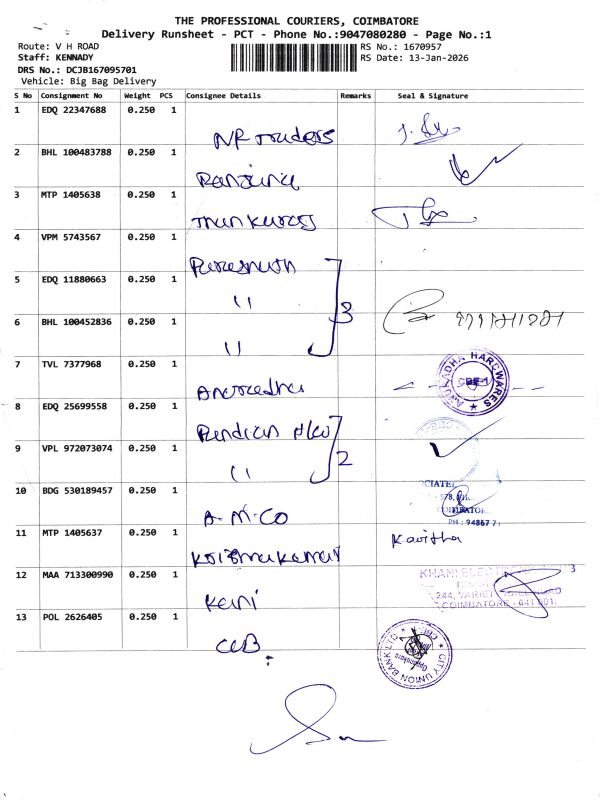 THE PROFESSIONAL COURIERS, COIMBATORE
Delivery Runsheet - PCT - Phone No.:9047080280 - Page No.:1
Route: V H ROAD
RS No.: 1670957
Staff: KENNADY
RS Date: 13-Jan-2026
DRS No.: DCJB167095701
Vehicle: Big Bag Delivery
S No Consignment No Weight PCS Consignee Details Remarks Seal & Signature
1 EDQ 22347688 0.250 1
NR Traders
2 BHL 100483788 0.250 1
Ranjana
3 MTP 1405638 0.250 1
4 VPM 5743567 0.250 1
Paresnath
5 EDQ 11880663 0.250 1
"
3
6 BHL 100452836 0.250 1
"
7 TVL 7377968 0.250 1
ANURADHA HARDWARES
CBE-1
Anuradha
8 EDQ 25699558 0.250 1
Pandian
9 VPL 972073074 0.250 1
"
2
10 BDG 530189457 0.250 1
COIMBATOR
PH : 94867 7
A.M.CO
11 MTP 1405637 0.250 1
Kavitha
Krishnakumar
12 MAA 713300990 1
0.250
KHANI ELECTR
244, VARIETY HALL ROAD
COIMBATORE - 641 001.
Kani
13 POL 2626405 0.250 1
CITY UNION BANK LTD
CUB